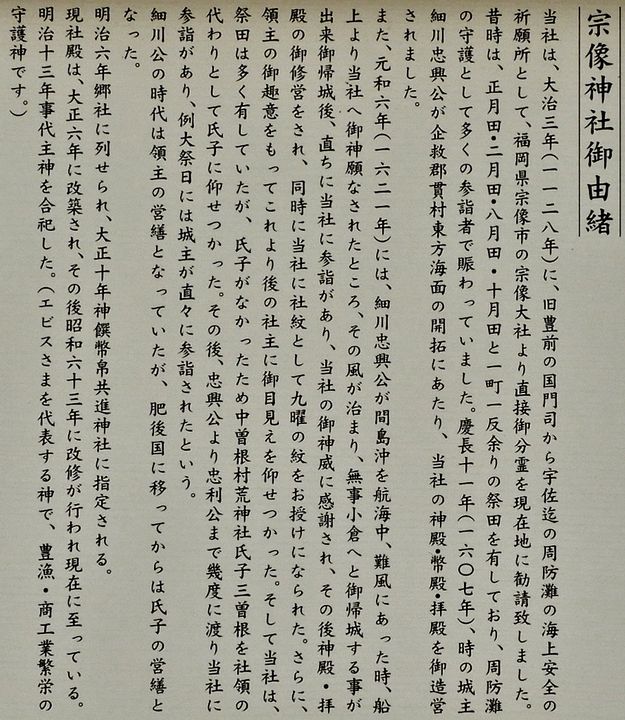 宗像神社御由緒
当社は、大治三年(一一二八年)に、旧豊前の国門司から宇佐迄の周防灘の海上安全の
祈願所として、福岡県宗像市の宗像大社より直接御分霊を現在地に勧請致しました。
昔時は、正月田・二月田・八月田・十月田と一町一反余りの祭田を有しており、周防灘
の守護として多くの参詣者で賑わっていました。慶長十一年(一六〇七年)、時の城主
細川忠興公が企救郡貫村東方海面の開拓にあたり、当社の神殿・幣殿・拝殿を御造営
されました。
また、元和六年(一六二一年)には、細川忠興公が間島沖を航海中、難風にあった時、船
上より当社へ御神願なされたところ、その風が治まり、無事小倉へと御帰城する事が
出来御帰城後、直ちに当社に参詣があり、当社の御神威に感謝され、その後神殿・拝
殿の御修営をされ、同時に当社に社紋として九曜の紋をお授けになられた。さらに、
領主の御趣意をもってこれより後の社主に御目見えを仰せつかった。そして当社は、
祭田は多く有していたが、氏子がなかったため中曽根村荒神社氏子三曽根を社領の
代わりとして氏子に仰せつかった。その後、忠興公より忠利公まで幾度に渡り当社に
参詣があり、例大祭日には城主が直々に参詣されたという。
細川公の時代は領主の営繕となっていたが、肥後国に移ってからは氏子の営繕と
なった。
明治六年郷社に列せられ、大正十年神饌幣帛共進神社に指定される。
現社殿は、大正六年に改築され、その後昭和六十三年に改修が行われ現在に至っている。
明治十三年事代主神を合祀した。(エビスさまを代表する神で、豊漁・商工業繁栄の
守護神です。)